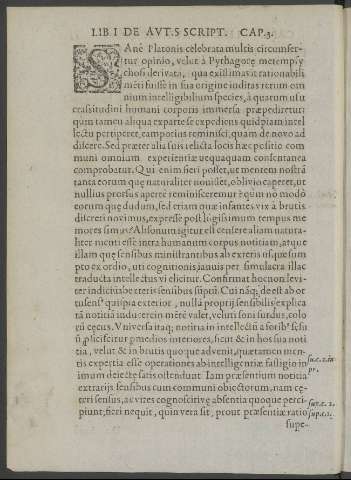 LIB. I DE AVT. S SCRIPT. CAP. 3.
SAnè Platonis celebrata multis circumfer-
tur opinio, velut à Pythagoræ metempsy
chosi derivata, qua existimavit rationabili
mēti fuisse in sua origine inditas rerum om
nium intelligibilium species, à quarum usu
crassitudini humani corporis immersa præpediretur:
qũm tamen aliqua ex parte se expediens quidpiam intel
lectu perciperet, eam potius reminisci, quam de novo ad
discere. Sed præter alia suis relicta locis hæc positio com
muni omnium experientiæ nequaquam consentanea
comprobatur. Qui enim fieri posset, ut mentem nostrā
tanta eorum quę naturaliter novisset, oblivio caperet, ut
nullius prorsus aperte reminisceremur? eorum quę dudum, sed etiam quæ infantes vix à brutis
discreti novimus, expresse post lōgissimum tempus me
mores simus? Absonum igitur est censere aliam natura-
liter menti esse intra humanum corpus notitiam, atque
illam quę sensibus ministrantibus ab externis usque sum
pto ex ordio, uti cognitionis januis per simulacra illac
traducta intellectus vi elicitur. Confirmat hoc non levi-
ter indicium ceteris sensibus supstes. Cui nāq; deest ab or
tu sensus quispiam exterior, nullā proprij sensibilis explica
tā notitiā inducere in mente valet, veluti soni surdus, colo
rū cęcus. Vniversa itaq; notitia in intellectū
notitia, velut & in brutis quoque advenit, quę tamen men-
tis expertia esse operationes ab intelligentiæ fastigio in
imum deiectę satis ostendunt. Iam præsentium notitia
extrarijs sensibus cum communi obiectorum, nam cę-
teri sensus, ac vires cognoscitivę absentia quoque perci-
piunt, fieri nequit, quin vera sit, prout præsentiæ ratio
supe-
sup. c. 2.
sup. c. 2.